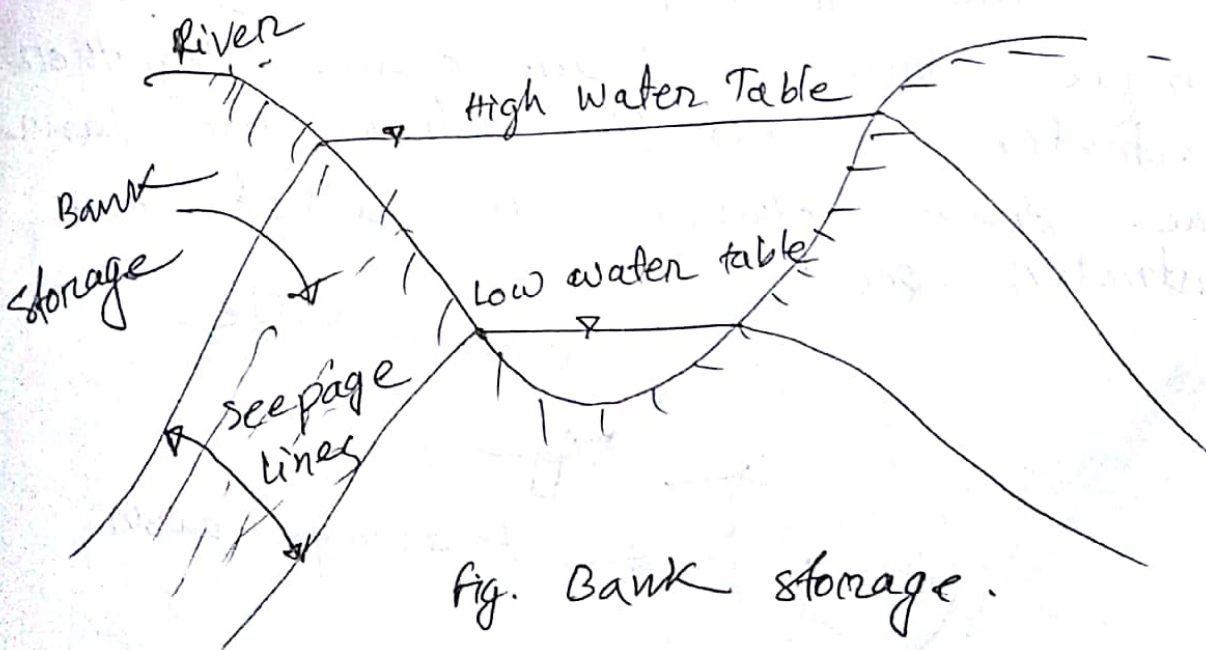 River
High Water Table
Bank
storage
Low water table
seepage
lines
fig. Bank storage.